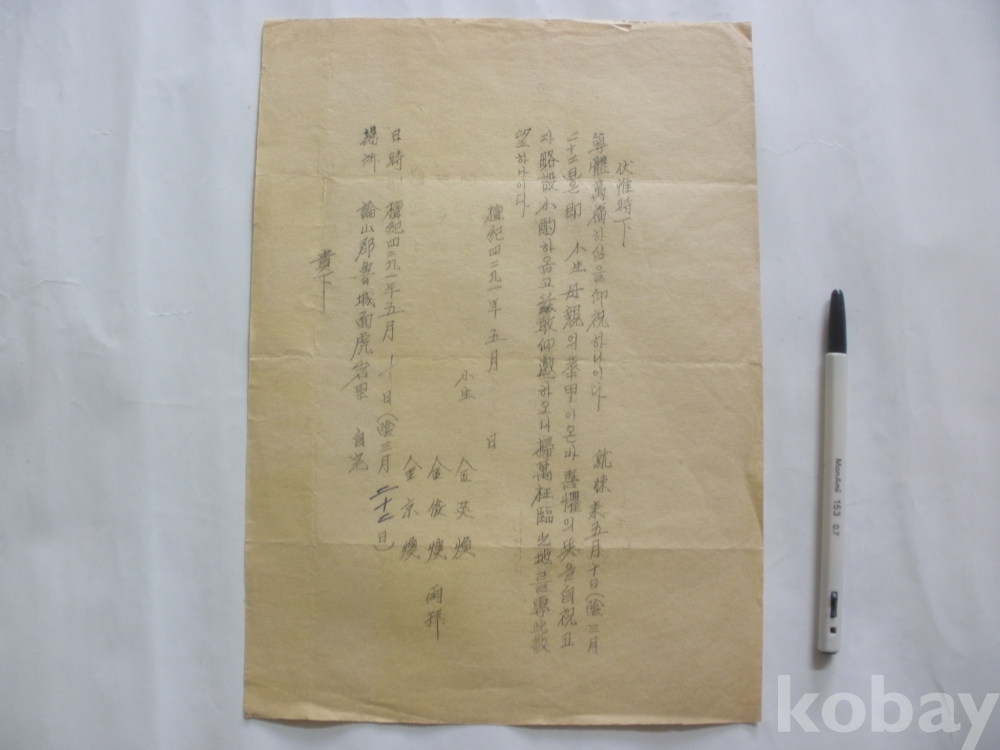 伏惟時下
尊體萬福하심을 仰祝하나이다 就悚 来五月十日(陰三月
二十二日)은 即 小生 母親의 華甲이온바 喜懼의 로 自祝코
자 略設小酌하옵고 玆敢仰邀하오니 掃萬枉臨之地를 專此敬
望하나이다
檀紀四二九一年 五月 日
小生 金英煥
金俊煥 再拜
金京煥
日時 檀紀四二九一年五月 十日(陰三月二十二日)
場所 論山郡魯城面虎岩里 自宅
貴下
Monami 153 0.7
kobay